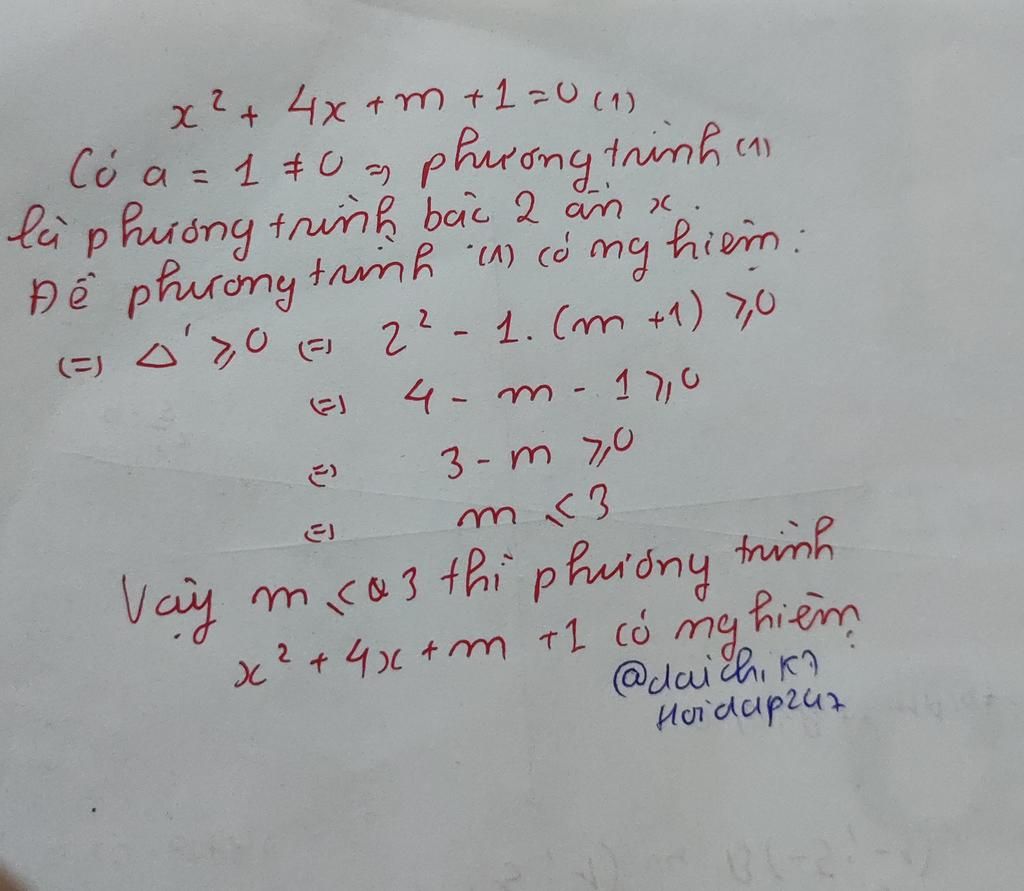 x² + 4x + m + 1 = 0 (1)
Có a = 1 ≠ 0 => phương trình (1)
là phương trình bậc 2 ẩn x.
Để phương trình (1) có nghiệm:
(=) Δ' ≥ 0 (=) 2² - 1. (m + 1) ≥ 0
(=) 4 - m - 1 ≥ 0
(=) 3 - m ≥ 0
(=) m ≤ 3
Vậy m ≤ 3 thì phương trình
x² + 4x + m + 1 có nghiệm
@daichik7
Hoidap247